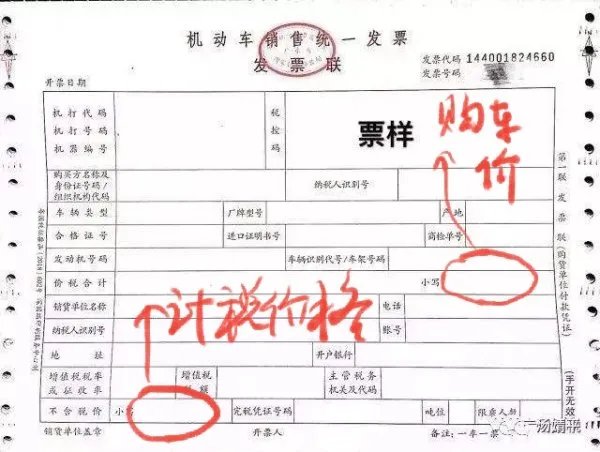 机动车销售统一发票
发票联
发票代码 144001824660
发票号码
开票日期
机打代码
机打号码
机器编号
税控码
票样
购车价
购买方名称及
身份证号码/
组织机构代码
纳税人识别号
车辆类型
厂牌型号
产地
合格证号
进口证明书号
商检单号
发动机号码
车辆识别代号/车架号码
价税合计
小写
计税价格
销货单位名称
电话
纳税人识别号
账号
地址
开户银行
增值税税率
或征收率
增值税
税额
主管税务
机关及代码
不含税价
小写
完税凭证号码
吨位
限乘人数
销货单位盖章
开票人
备注:一车一票
第一联 发票联(购货单位付款凭证)
(手开无效)
汤婧联